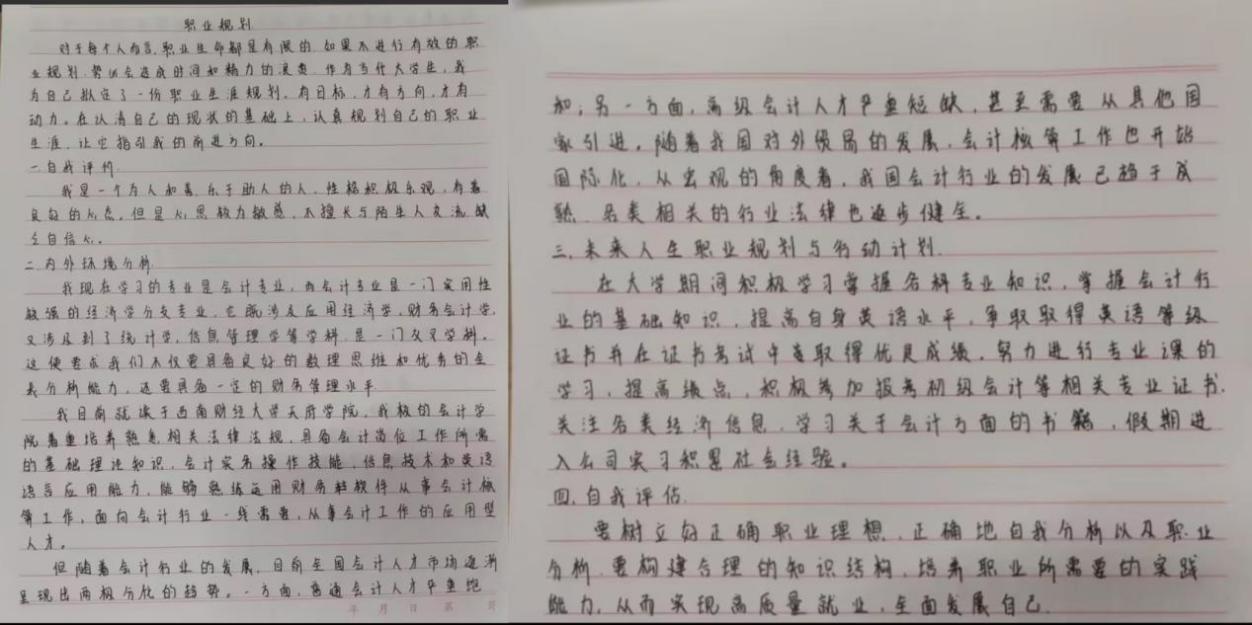 职业规划
对于每个人而言，职业生命都是有限的，如果不进行有效的职
业规划，势必会造成时间和精力的浪费。作为当代大学生，我
为自己拟定了一份职业生涯规划。有目标，才有方向，才有
动力。在认清自己的现状的基础上，认真规划自己的职业
生涯，让它指引我的前进方向。
一自我评价
我是一个为人和善，乐于助人的人，性格积极乐观，有着
良好的心态，但是心思较为敏感，不擅长与陌生人交流，缺
乏自信心。
二内外环境分析
我现在学习的专业是会计专业，而会计专业是一门实用性
较强的经济学分支专业，它既涉及应用经济学，财务会计学，
又涉及到了统计学，信息管理学等学科，是一门交叉学科。
这便要求我们不仅要具备良好的数理思维和优秀的全
表分析能力，还要具备一定的财务管理水平
我目前就读于西南财经大学天府学院，我校的会计学
院着重培养熟悉相关法律法规，具备会计岗位工作所需
的基础理论知识，会计实务操作技能，信息技术和英语
语言应用能力，能够熟练运用财务软件从事会计核
算工作，面向会计行业一线需要，从事会计工作的应用型
人才。
但随着会计行业的发展，目前全国会计人才市场逐渐
呈现出两极分化的趋势。一方面，普通会计人才严重饱
年 月 日 第 页
和；另一方面，高级会计人才严重短缺，甚至需要从其他国
家引进。随着我国对外贸易的发展，会计核算工作也开始
国际化，从宏观的角度看，我国会计行业的发展已趋于成
熟，各类相关的行业法律也逐步健全。
三.未来人生职业规划与行动计划.
在大学期间积极学习掌握各科专业知识，掌握会计行
业的基础知识，提高自身英语水平，争取取得英语等级
证书并在证书考试中争取取得优良成绩，努力进行专业课的
学习，提高绩点，积极参加报考初级会计等相关专业证书.
关注各类经济信息，学习关于会计方面的书籍，假期进
入公司实习积累社会经验。
四.自我评估.
要树立好正确职业理想，正确地自我分析以及职业
分析，要构建合理的知识结构，培养职业所需要的实践
能力，从而实现高质量就业，全面发展自己.